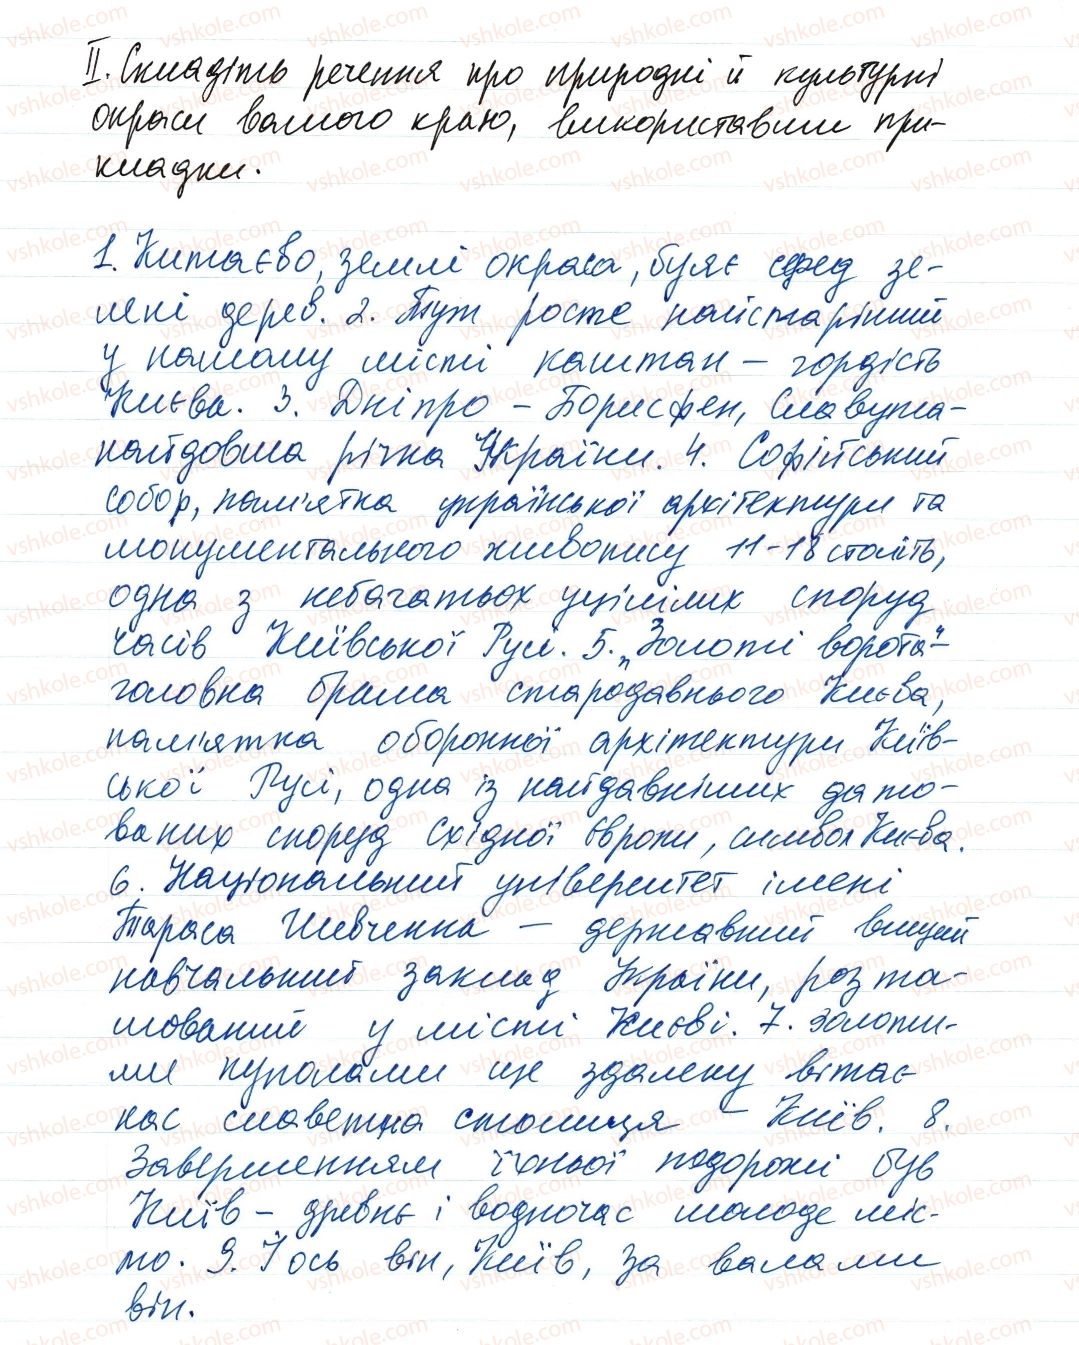 ІІ. Складіть речення про природні й культурні
окраси вашого краю, використавши при-
кладки.
1. Китаєво, землі окраса, буяє серед зе-
лені дерев. 2. Тут росте найстаріший
у нашому місті каштан – гордість
Києва. 3. Дніпро – Борисфен, Славута-
найдовша річка України. 4. Софійський
собор, пам'ятка української архітектури та
монументального живопису 11-18 століть,
одна з небагатьох уцілілих споруд
часів Київської Русі. 5. „Золоті ворота"-
головна брама стародавнього Києва,
пам'ятка оборонної архітектури Київ-
ської Русі, одна із найдавніших дато-
ваних споруд Східної Європи, символ Києва.
6. Національний університет імені
Тараса Шевченка – державний вищий
навчальний заклад України, розта-
шований у місті Києві. 7. Золоти-
ми куполами ще здалеку вітає
нас славетна столиця – Київ. 8.
Завершенням їхньої подорожі був
Київ – древнє і водночас молоде міс-
то. 9. І ось він, Київ, за валами
він.